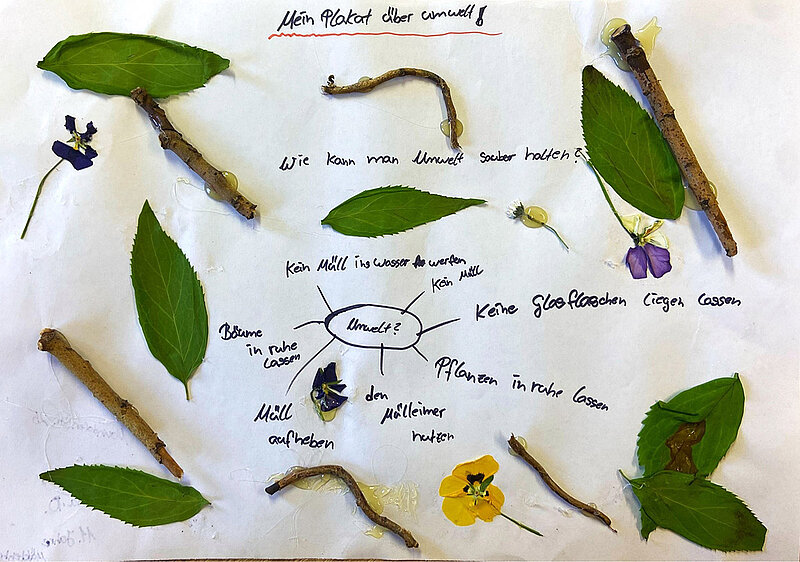 Mein Plakat über umwelt!
Wie kann man Umwelt sauber halten?
Kein Müll ins wasser werfen
Kein Müll
Keine glasflaschen liegen lassen
Umwelt?
Bäume
in ruhe
lassen
Pflanzen in ruhe lassen
Müll
aufheben
den
Mülleimer
nutzen